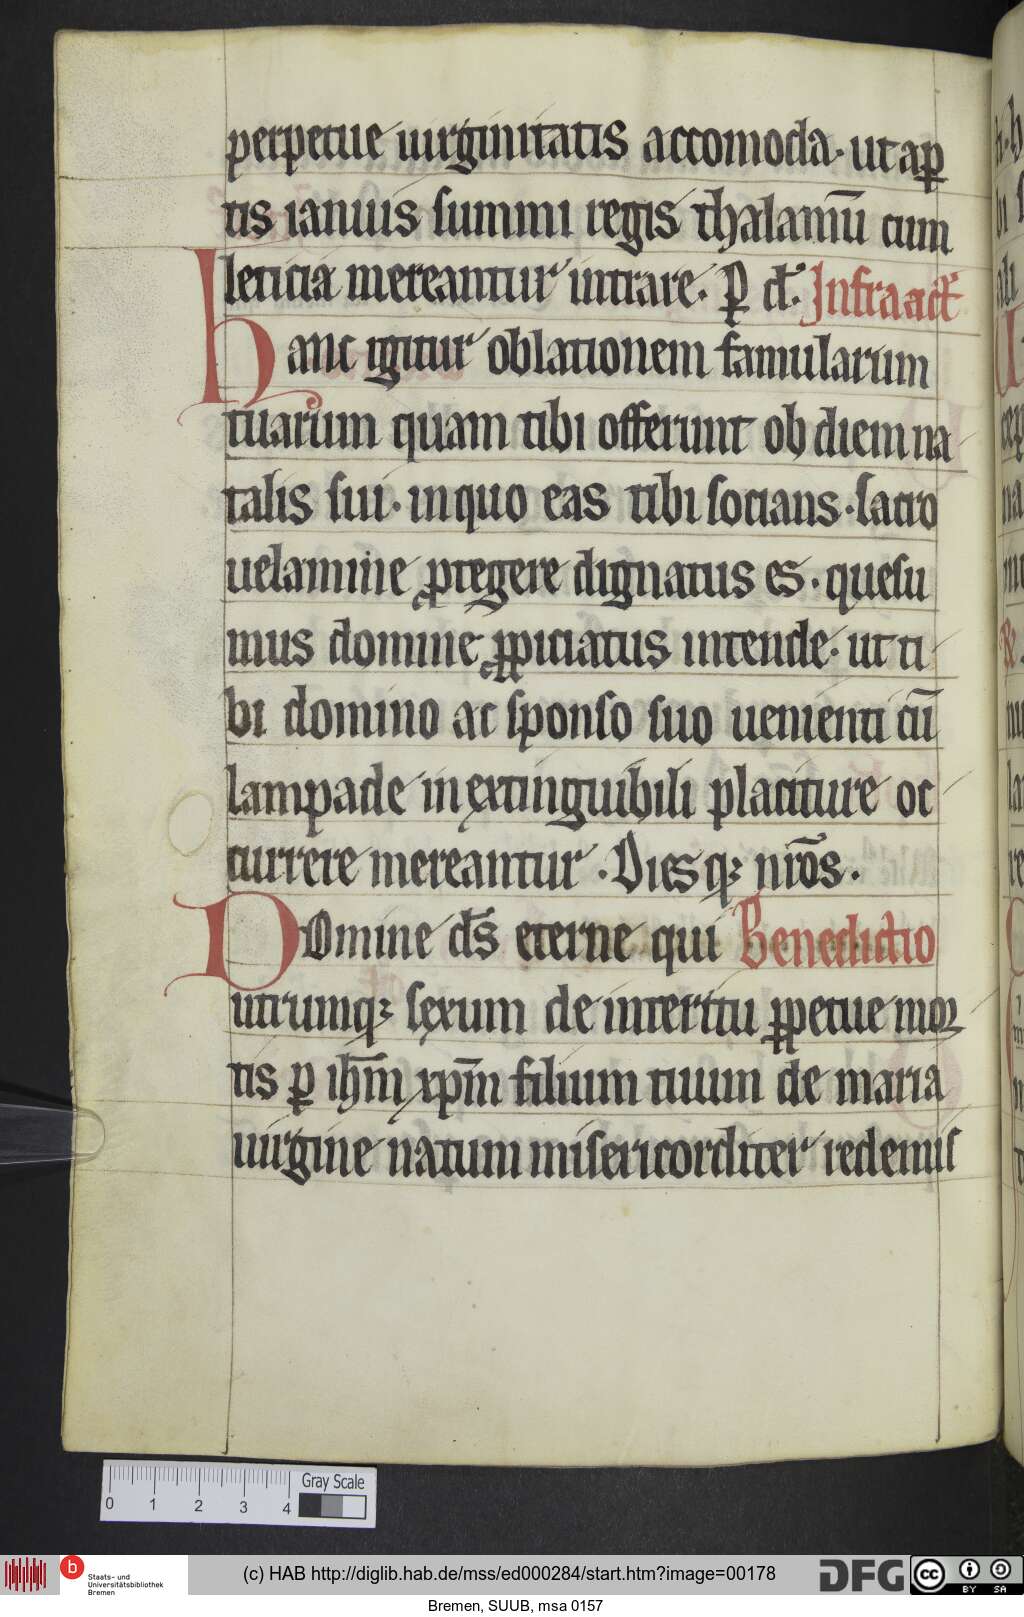 perpetue uirginitatis accomoda. ut ap̲
tis ianuis summi regis thalamū cum
leticia mereantur intrare. ꝑ d̄. Infra act̄
Hanc igitur oblationem famularum
tuarum quam tibi offerunt ob diem na
talis sui. in quo eas tibi socians. sacro
uelamine ꝓtegere dignatus es. quesu
mus domine ꝓpiciatus intende. ut ti
bi domino ac sponso suo uenienti cū
lampade inextinguibili placiture oc
currere mereantur. Diesqꝫ nr̄os.
DOmine ds̄ eterne qui Benedictio
utrumqꝫ sexum de interitu ꝑpetue mor
tis ꝑ ihm̄ xp̄m filium tuum de maria
uirgine natum misericorditer redemis
0 1 2 3 4
Gray Scale
b Staats- und
Universitätsbibliothek
Bremen
(c) HAB http://diglib.hab.de/mss/ed000284/start.htm?image=00178
DFG
cc BY SA
Bremen, SUUB, msa 0157